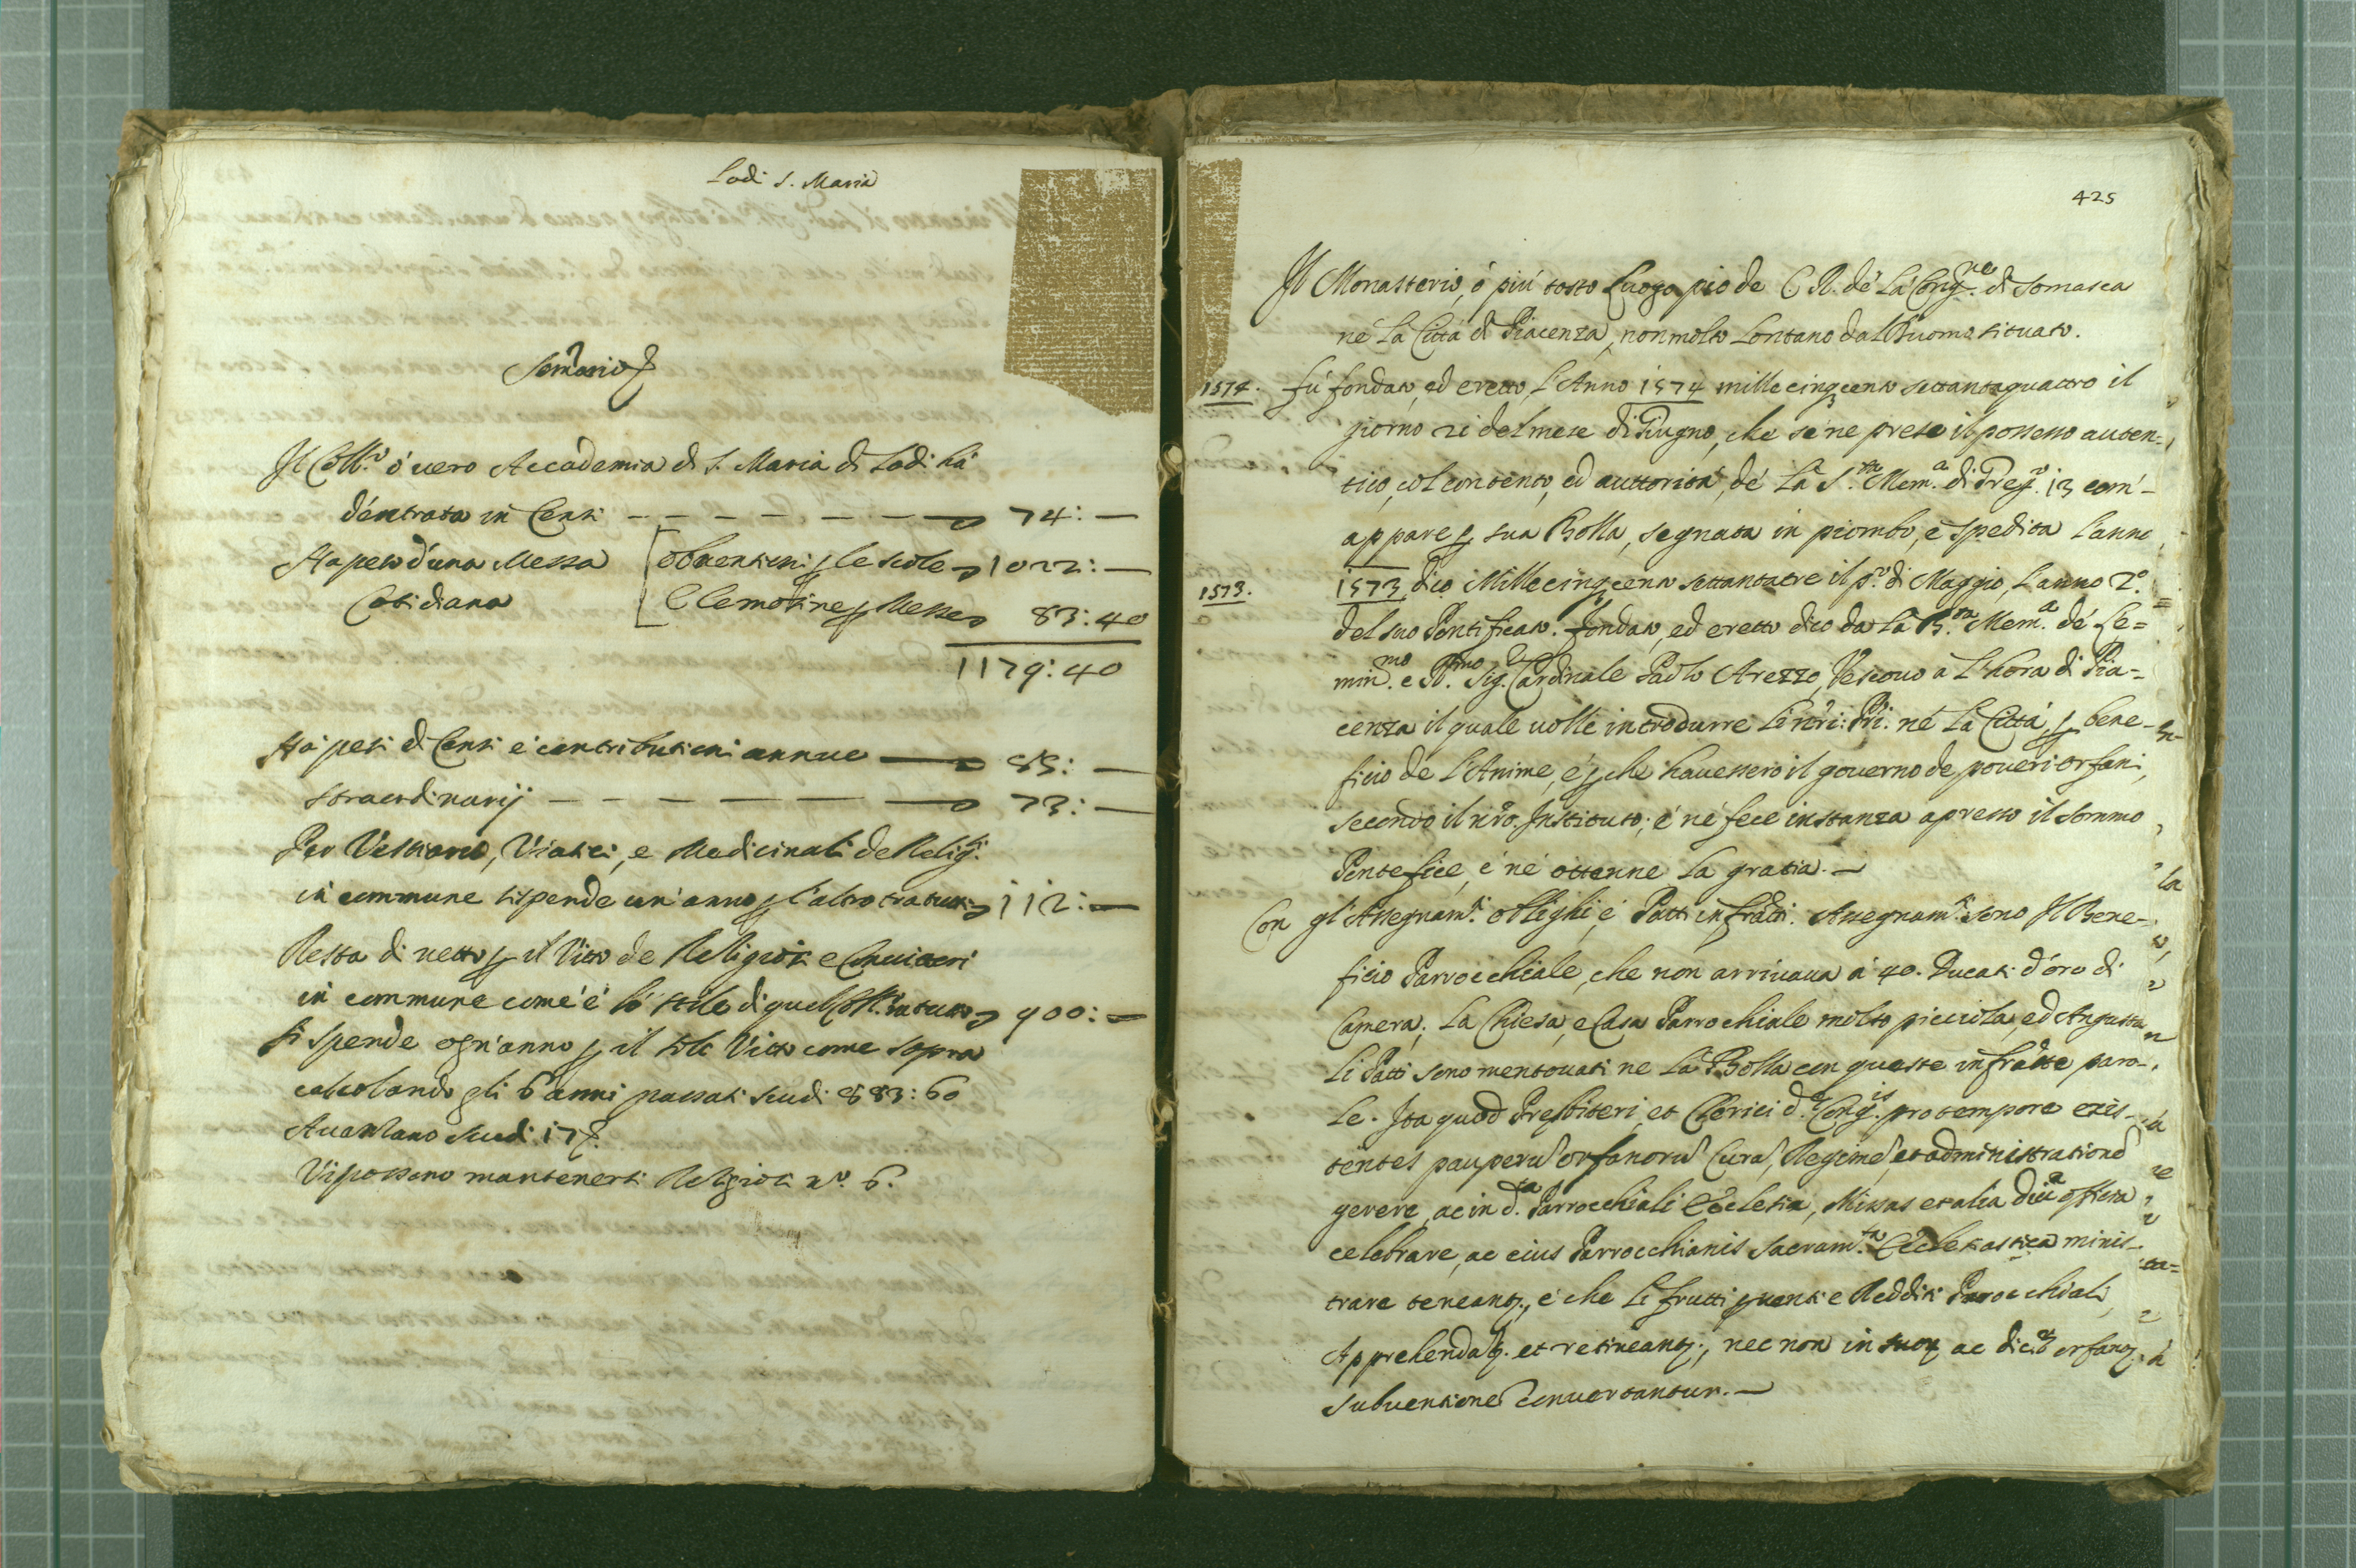 Lodi S. Maria
Som.rio
Il Coll.o ó uero Accademia di S. Maria di Lodi há
d'entrata in Censi 74: —
Ha peso d'una Messa Cotidiana
obuentioni p le scole 1022: —
Elemosine p Messe 83:40
1179:40
Há pesi di Censi é contributioni annue 95: —
straordinarij 73: —
Per Vestiario, Viatici, e Medicinali de Relig.si
in commune si spende un' anno p l'altro 112: —
Resta di netto p il Vitto de Religiosi e Conuittori
in commune come é lo stile di quel Coll.o in tutto 900: —
Si spende ogn'anno p il solo Vitto come sopra
calcolando gli 6 anni passati scudi 883:60
Auanzano scudi 17
Vi possono mantenersi Religiosi n.o 6.
425
Il Monasterio, ó piú tosto Luogo pio de C R. dé La Cong.ne di Somasca
né La Cittá di Piacenza, non molto Lontano dal Duomo situato.
1574. fú fondato, ed eretto, L'Anno 1574 mille cinqcento settantaquattro il
giorno 21 del mese di Giugno, che sé ne prese il possesso auten=
tico, col consenso, ed auttoritá, dé La S.ta Mem.a di Greg.o 13 com'-
appare p sua Bolla, segnata in piombo, é spedita L'anno
1573. 1573, dico Mille cinqcento settantatre il p.o di Maggio, L'anno 2.o
del suo Pontificato. fondato, ed eretto dico da La B.ta Mem.a dé Le=
min.mo e R.mo Sig.r Cardinale Paolo Arezzo, Vescouo a L'hora di Pia=
cenza il quale uolle introdurre Li nr̃i: Pri: né La Cittá, p bene-
ficio de L'Anime, é p che hauessero il gouerno de poueri orfani,
secondo il nr̃o. Instituto; é né fece instanza apresso il Sommo
Pontefice, é né ottenne La gratia. —
Con gl'Assegnam.ti oblighi, é Patti infratti. Assegnam.ti sono Il Bene-
ficio Parrocchiale, che non arriuaua á 40. Ducati d'oro di
Camera; La Chiesa, e Casa Parrochiale molto picciola, ed Angusta
Li Patti sono mentouati ne La Bolla con queste infratte paro-
le. Ita quod Presbiteri, et Clerici d.ae Cong.is pro tempore exis-
tentes pauperũ orfanorũ Curã, Regimẽ, et administrationẽ
gerere, ac in d.ta Parrocchiali Ecclesia, Missas et alia diua officia
celebrare, ac eius Parrocchianis Sacram.ta Ecclesiastica minis-
trare teneantq., é che Li frutti puenti e Redditi Parrocchiali,
Apprehendatq. et retineantq., nec non in suoȝ ac dictoȝ orfanoȝ
subuentionẽ conuertantur. —